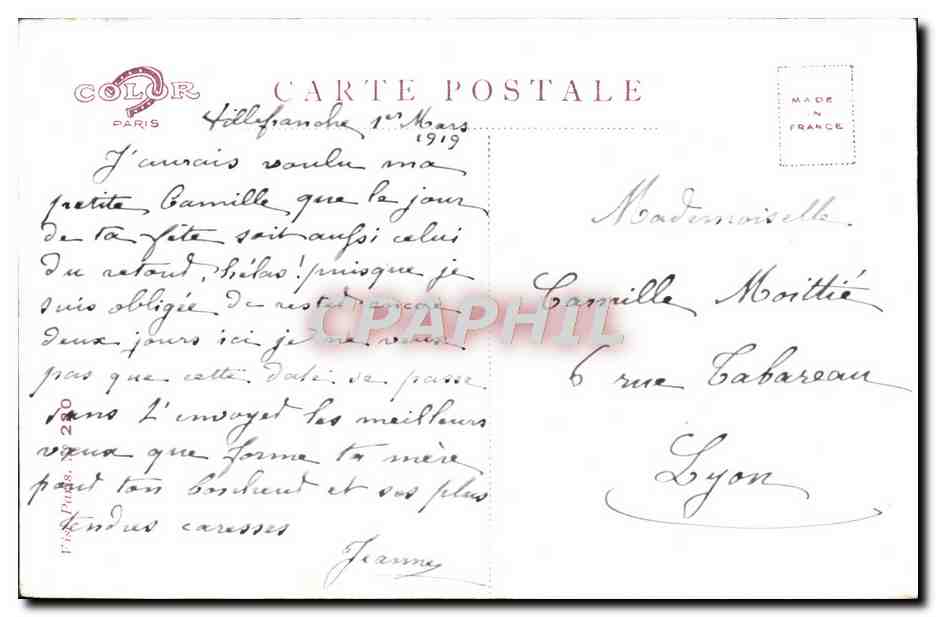 COLOR
PARIS
CARTE POSTALE
MADE
IN
FRANCE
Villefranche 1er Mars
1919
J'aurais voulu ma
petite Camille que le jour
de ta fête soit aussi celui
du retour, hélas! puisque je
suis obligée de rester encore
deux jours ici je ne veux
pas que cette date se passe
sans t'envoyer les meilleurs
vœux que forme ta mère
pour ton bonheur et ses plus
tendres caresses
Jeanne
Mademoiselle
Camille Moittié
6 rue Tabareau
Lyon
Visé Paris. No 220
CPAPHIL